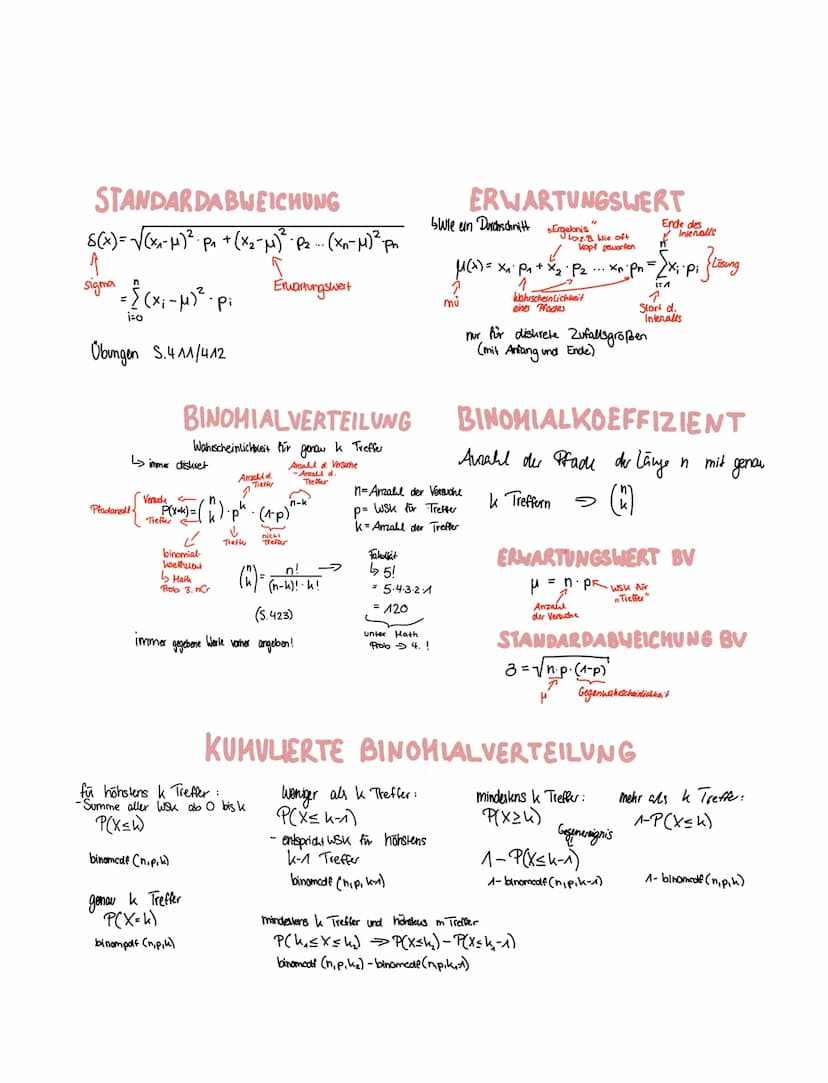 STANDARDABWEICHUNG
δ(x)=√((x₁-μ)²·p₁+(x₂-μ)²·p₂...(xₙ-μ)²·pₙ
sigma
Erwartungswert
=∑(xᵢ-μ)²·pᵢ
n
i=0
Übungen S.411/412
ERWARTUNGSWERT
↳Wie ein Durchschnitt
"Ergebnis"
↳z.B. Wie oft
Kopf geworfen
Ende des
Intervalls
μ(x)= x₁·p₁+x₂·p₂ ... xₙ·pₙ=∑xᵢ·pᵢ } Lösung
n
i=1
mü
Wahrscheinlichkeit
eines Pfades
Start d.
Intervalls
nur für diskrete Zufallsgrößen
(mit Anfang und Ende)
BINOMIALVERTEILUNG
Wahrscheinlichkeit für genau k Treffer
↳ immer diskret
Anzahl d.
Treffer
Anzahl d. Versuche
- Anzahl d.
Treffer
Pfadanzahl {
Versuche
Treffer
P(X=k)=(n k)·p^k·(1-p)^n-k
Treffer
nicht
Treffer
binomial-
koeffizient
↳ Math
Prob 3. nCr
n=Anzahl der Versuche
p= WSK für Treffer
k=Anzahl der Treffer
(n k)= n!/(n-k)!·k! →
(S.423)
Fakultät
↳ 5!
= 5·4·3·2·1
= 120
unter Math
Prob → 4. !
immer gegebene Werte vorher angeben!
BINOMIALKOEFFIZIENT
Anzahl der Pfade der Länge n mit genau
k Treffern ⇒ (n k)
ERWARTUNGSWERT BV
μ = n·p
WSK für
"Treffer"
Anzahl
der Versuche
STANDARDABWEICHUNG BV
∂=√n·p·(1-p)
μ
Gegenwahrscheinlichkeit
KUMULIERTE BINOMIALVERTEILUNG
für höhstens k Treffer:
-Summe aller WSK ab 0 bis k
P(X≤k)
binomcdf (n,p,k)
genau k Treffer
P(X=k)
binompdf (n,p,k)
Weniger als k Treffer:
P(X≤ k-1)
- entspricht WSK für höhstens
k-1 Treffer
binomcdf (n,p,k-1)
mindestens k Treffer:
P(X≥k)
Gegenereignis
1-P(X≤k-1)
1-binomcdf(n,p,k-1)
mehr als k Treffer:
1-P(X≤k)
1-binomcdf(n,p,k)
mindestens k Treffer und höhstens m Treffer
P(k₁≤X≤k₂) ⇒P(X≤k₂)-P(X≤k₁-1)
binomcdf (n,p,k₂)-binomcdf(n,p,k₁-1)